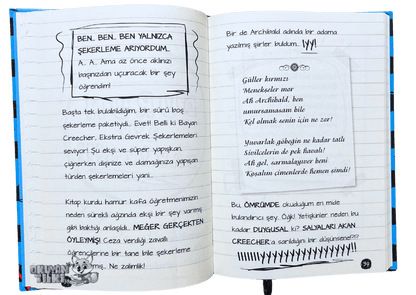 BEN... BEN... BEN YALNIZCA
ŞEKERLEME ARIYORDUM...
A... A... Ama az önce aklınızı
başınızdan uçuracak bir şey
öğrendim!
Başta tek bulabildiğim, bir sürü boş
şekerleme paketiydi... Evet! Belli ki Bayan
Creecher, Ekstra Gevrek Şekerlemeleri
seviyor! Şu ekşi ve süper yapışkan,
çiğnerken dişinize ve damağınıza yapışan
türden şekerlemeleri yani...
Kitap kurdu hamur kafa öğretmenimizin
neden sürekli ağzında ekşi bir şey varmış
gibi baktığı anlaşıldı... MEĞER GERÇEKTEN
ÖYLEYMİŞ! Ceza verdiği zavallı
öğrencilerine bir tane bile şekerleme
vermemiş... Ne zalimlik!
Bir de Archibald adında bir adama
yazılmış şiirler buldum... IYY!
Güller kırmızı
Menekşeler mor
Ah Archibald, ben
umursamasam bile
Kel almak senin için ne zor!
Yuvarlak göbeğin ne kadar tatlı
Sivilcelerin de pek havalı!
Ah gel, sarmalayıver beni
Koşalım çimenlerde hemen şimdi!
Bu, ÖMRÜMDE okuduğum en mide
bulandırıcı şey. Öğk! Yetişkinler neden bu
kadar DUYGUSAL ki? SALYALARI AKAN
CREECHER'a sarıldığını bir düşünsenize!?
39